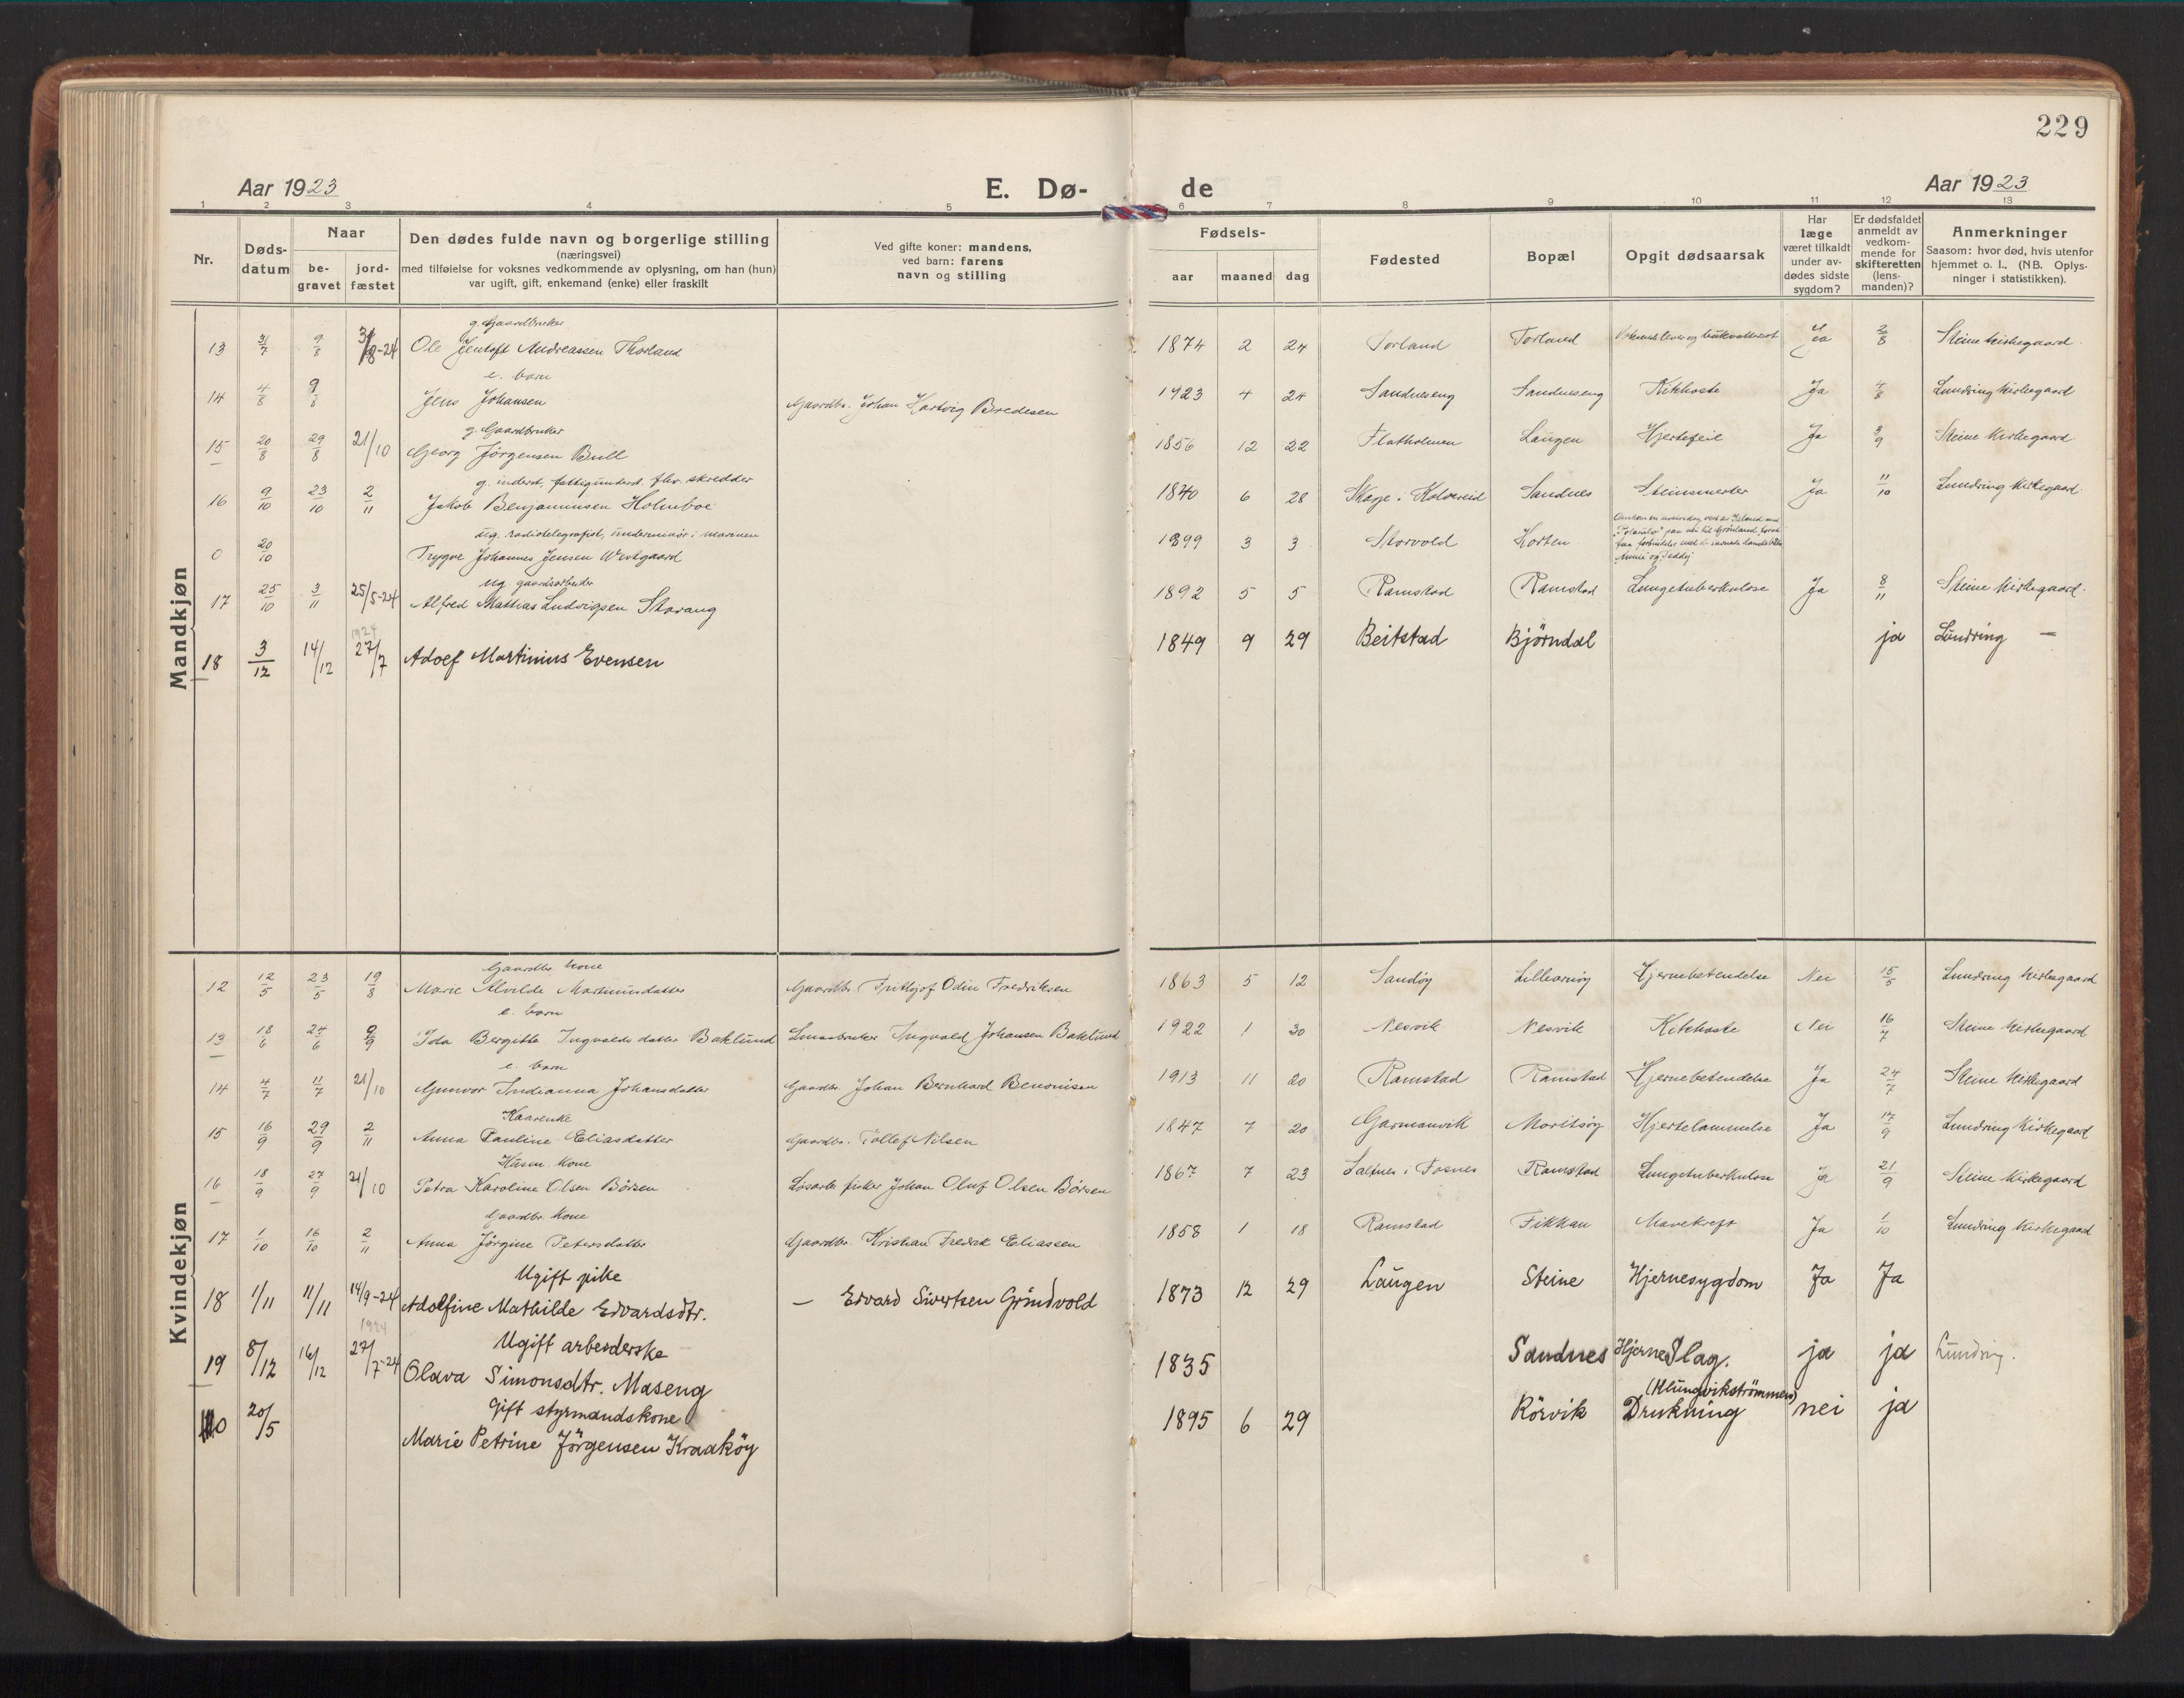 229
Aar 1923 E. Dø- de Aar 1923
1 2 3 4 5 6 7 8 9 10 11 12 13
Nr. Døds-datum Naar be-gravet jord-fæstet Den dødes fulde navn og borgerlige stilling (næringsvei) med tilføielse for voksnes vedkommende av oplysning, om han (hun) var ugift, gift, enkemand (enke) eller fraskilt Ved gifte koner: mandens, ved barn: farens navn og stilling Fødsels- aar maaned dag Fødested Bopæl Opgit dødsaarsak Har læge været tilkaldt under av-dødes sidste sygdom? Er dødsfaldet anmeldt av vedkom-mende for skifteretten (lens-manden)? Anmerkninger Saasom: hvor død, hvis utenfor hjemmet o. l., (NB. Oplys-ninger i statistikken).
Mandkjøn
g. Gaardbruker
13 31/7 9/8 3/8-24 Ole Jentoft Andreassen Thorland 1874 2 24 Torland Torland Ja 2/8 Steine kirkegaard
e. barn
14 4/8 9/8 Jens Johansen Gaardbr. Johan Hartvig Bredesen 1923 4 24 Sandneseng Sandneseng Kikhoste Ja 4/8 Lundring Kirkegaard
g. Gaardbruker
15 20/8 29/8 21/10 Georg Jörgensen Bull 1856 12 22 Flatholmen Laugen Hjertefeil Ja 3/9 Steine Kirkegaard
g. inderst, fattigunderst. fhv. skredder
16 9/10 23/10 2/11 Jakob Benjaminsen Holmboe 1840 6 28 Skage i Kolvereid Sandnes Steinsmerter Ja 11/10 Lundring Kirkegaard
ug. radiotelegrafist, underminör i marinen
0 20/10 Trygve Johannes Jensen Westgaard 1899 3 3 Storvold Horten Omkom en uveirsdag vest av Island med "Polarulv" paa vei til Grönland
"Annie" og "Teddy"
ug. gaardsarbeider
17 25/10 3/11 25/5-24 Alfred Mathias Ludvigsen Stavang 1892 5 5 Ramstad Ramstad Lungetuberkulose Ja 8/11 Steine kirkegaard
1924
18 3/12 14/12 27/7 Adolf Martinius Evensen 1849 9 29 Beitstad Bjørndal ja Lundring —
Kvindekjøn
Gaardbr. kone
12 12/5 23/5 19/8 Marie Alvilde Martinusdatter Gaardbr. Frithjof Odin Fredriksen 1863 5 12 Sandøy Hjernebetendelse Nei 15/5 Lundring kirkegaard
e. barn
13 18/6 24/6 9/9 Ida Bergitte Ingvaldsdatter Baklund Smaabruker Ingvald Johansen Baklund 1922 1 30 Nesvik Nesvik Kikhoste Nei 16/7 Steine kirkegaard
e. barn
14 4/7 11/7 21/10 Gunvor Indianna Johansdatter Gaardbr. Johan Bernhard Benonisen 1913 11 20 Ramstad Ramstad Hjernebetendelse Ja 24/7 Steine kirkegaard
Kaarenke
15 16/9 29/9 2/11 Anna Pauline Eliasdatter Gaardbr. Tollef Nilsen 1847 7 20 Garmanvik Moritsöy Hjertelammelse Ja 17/9 Lundring Kirkegaard
Husm. kone
16 18/9 27/9 21/10 Petra Karoline Olsen Börsen Løsarb. fisker Johan Oluf Olsen Börsen 1867 7 23 Saltnes i Fosnes Ramstad Lungetuberkulose Ja 21/9 Steine kirkegaard
Gaardbr. kone
17 1/10 16/10 2/11 Anna Jörgine Petersdatter Gaardbr. Kristian Fredrik Eliassen 1858 1 18 Ramstad Fikkan Mavekreft Ja 1/10 Lundring kirkegaard
Ugift pike
18 1/11 11/11 14/9-24 Adolfine Mathilde Edvardsdtr. — Edvard Sivertsen Grindvold 1873 12 29 Laugen Steine Hjernesygdom Ja Ja
1924
Ugift arbeiderske
19 8/12 16/12 27/7-24 Olava Simonsdtr. Maseng 1835 Sandnes Hjerneslag. ja ja Lundring.
Gift styrmandskone
0 20/5 Marie Petrine Jörgensen Kraaköy 1895 6 29 Rörvik Drukning (Hlungvikströmmen) nei ja